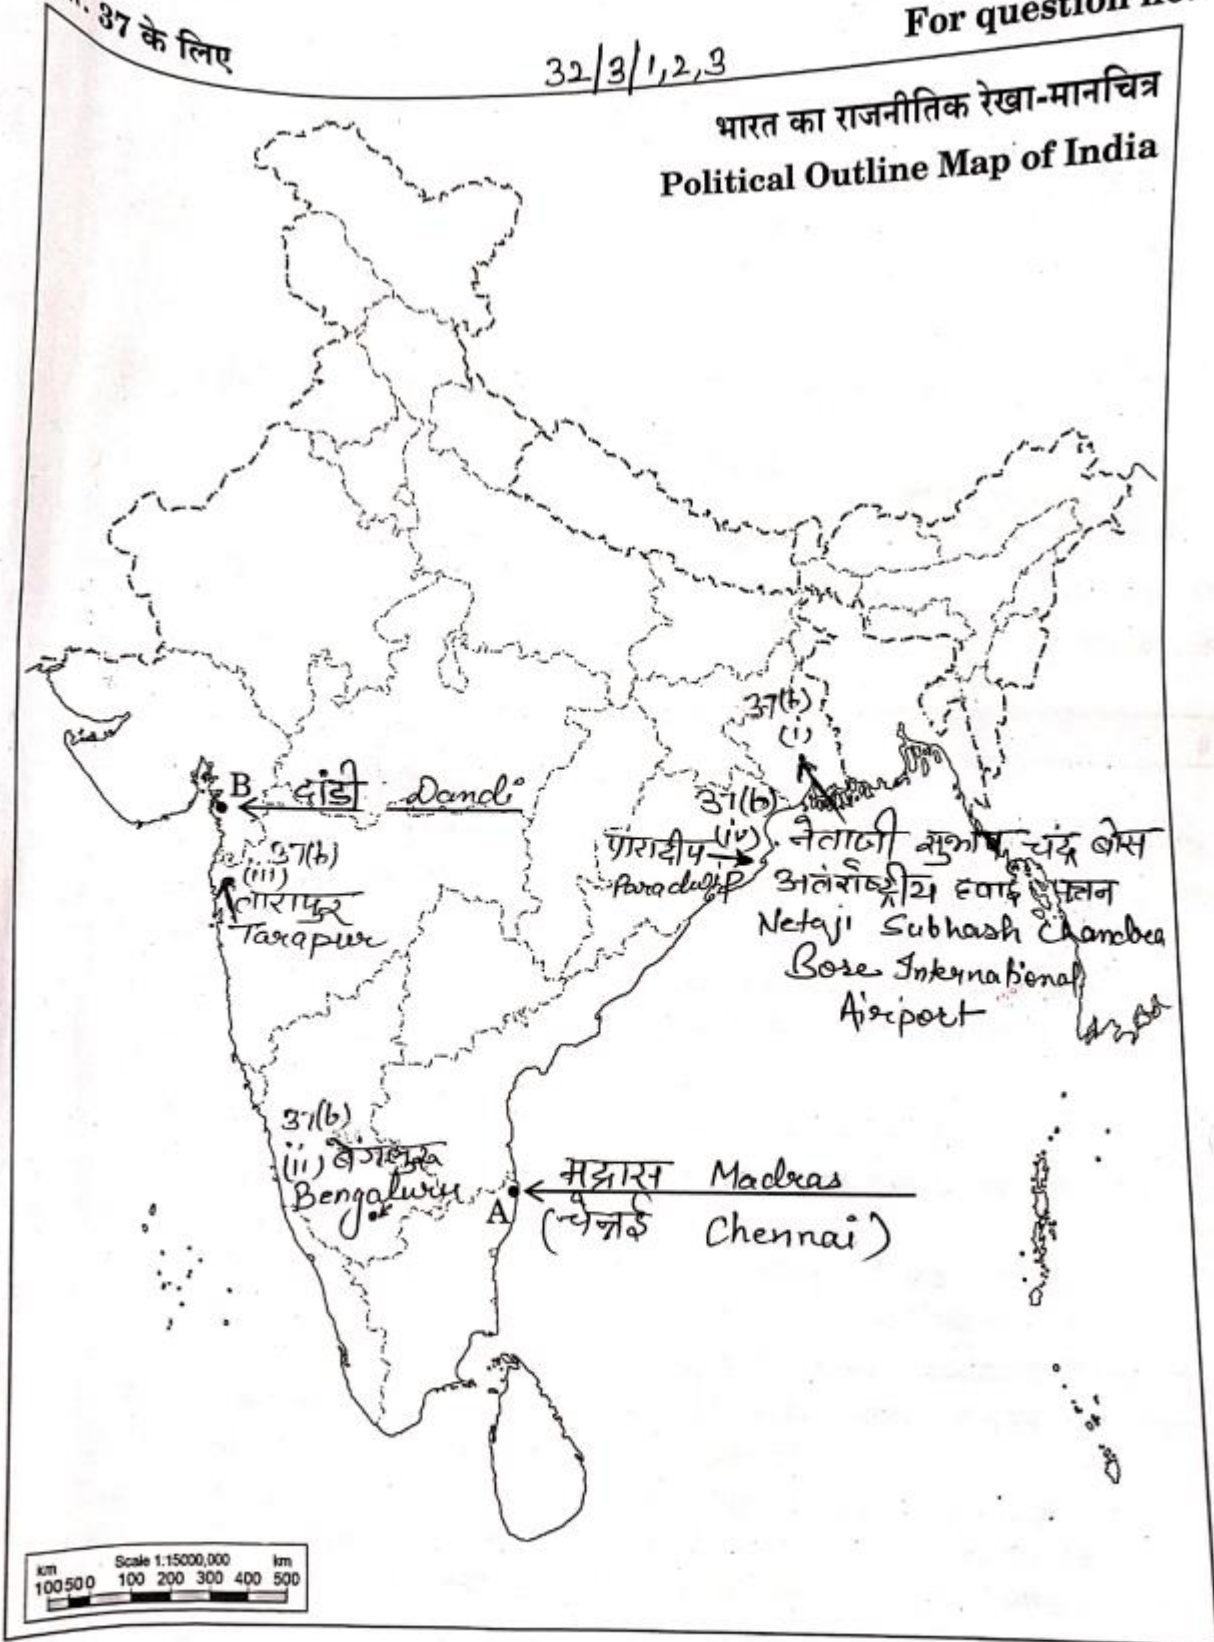 37 के लिए
For question no.
32/3/1,2,3
भारत का राजनीतिक रेखा-मानचित्र
Political Outline Map of India
37(b)
(i)
B
दांडी Dandi
37(b)
(iv)
पारादीप
Paradwip
37(b)
(iii)
तारापुर
Tarapur
नेताजी सुभाष चंद्र बोस
अतंर्राष्ट्रीय हवाई पत्तन
Netaji Subhash Chandra
Bose International
Airport
37(b)
(ii) बेंगलुरु
Bengaluru
A
मद्रास Madras
(चेन्नई Chennai)
km Scale 1:15000,000 km
100 50 0 100 200 300 400 500